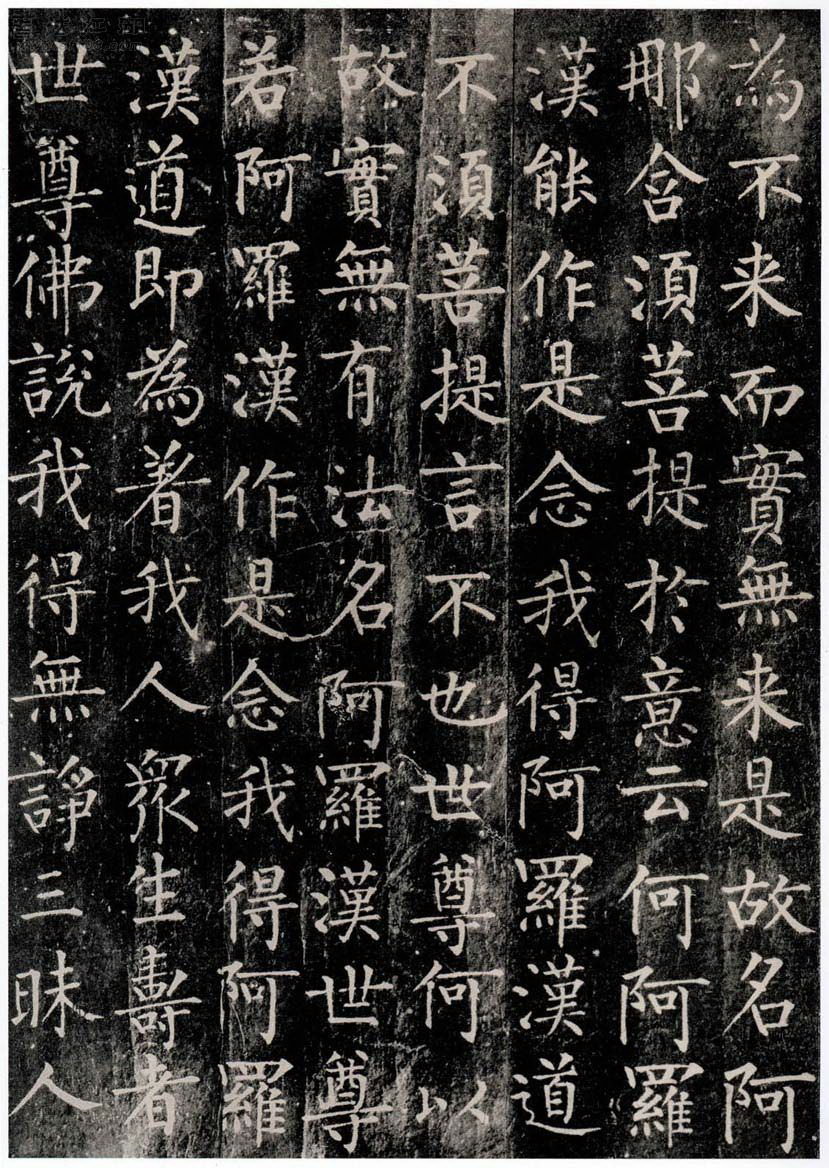 為不来而實無来是故名阿
那含須菩提於意云何阿羅
漢能作是念我得阿羅漢道
不須菩提言不也世尊何以
故實無有法名阿羅漢世尊
若阿羅漢作是念我得阿羅
漢道即為著我人衆生壽者
世尊佛說我得無諍三昧人